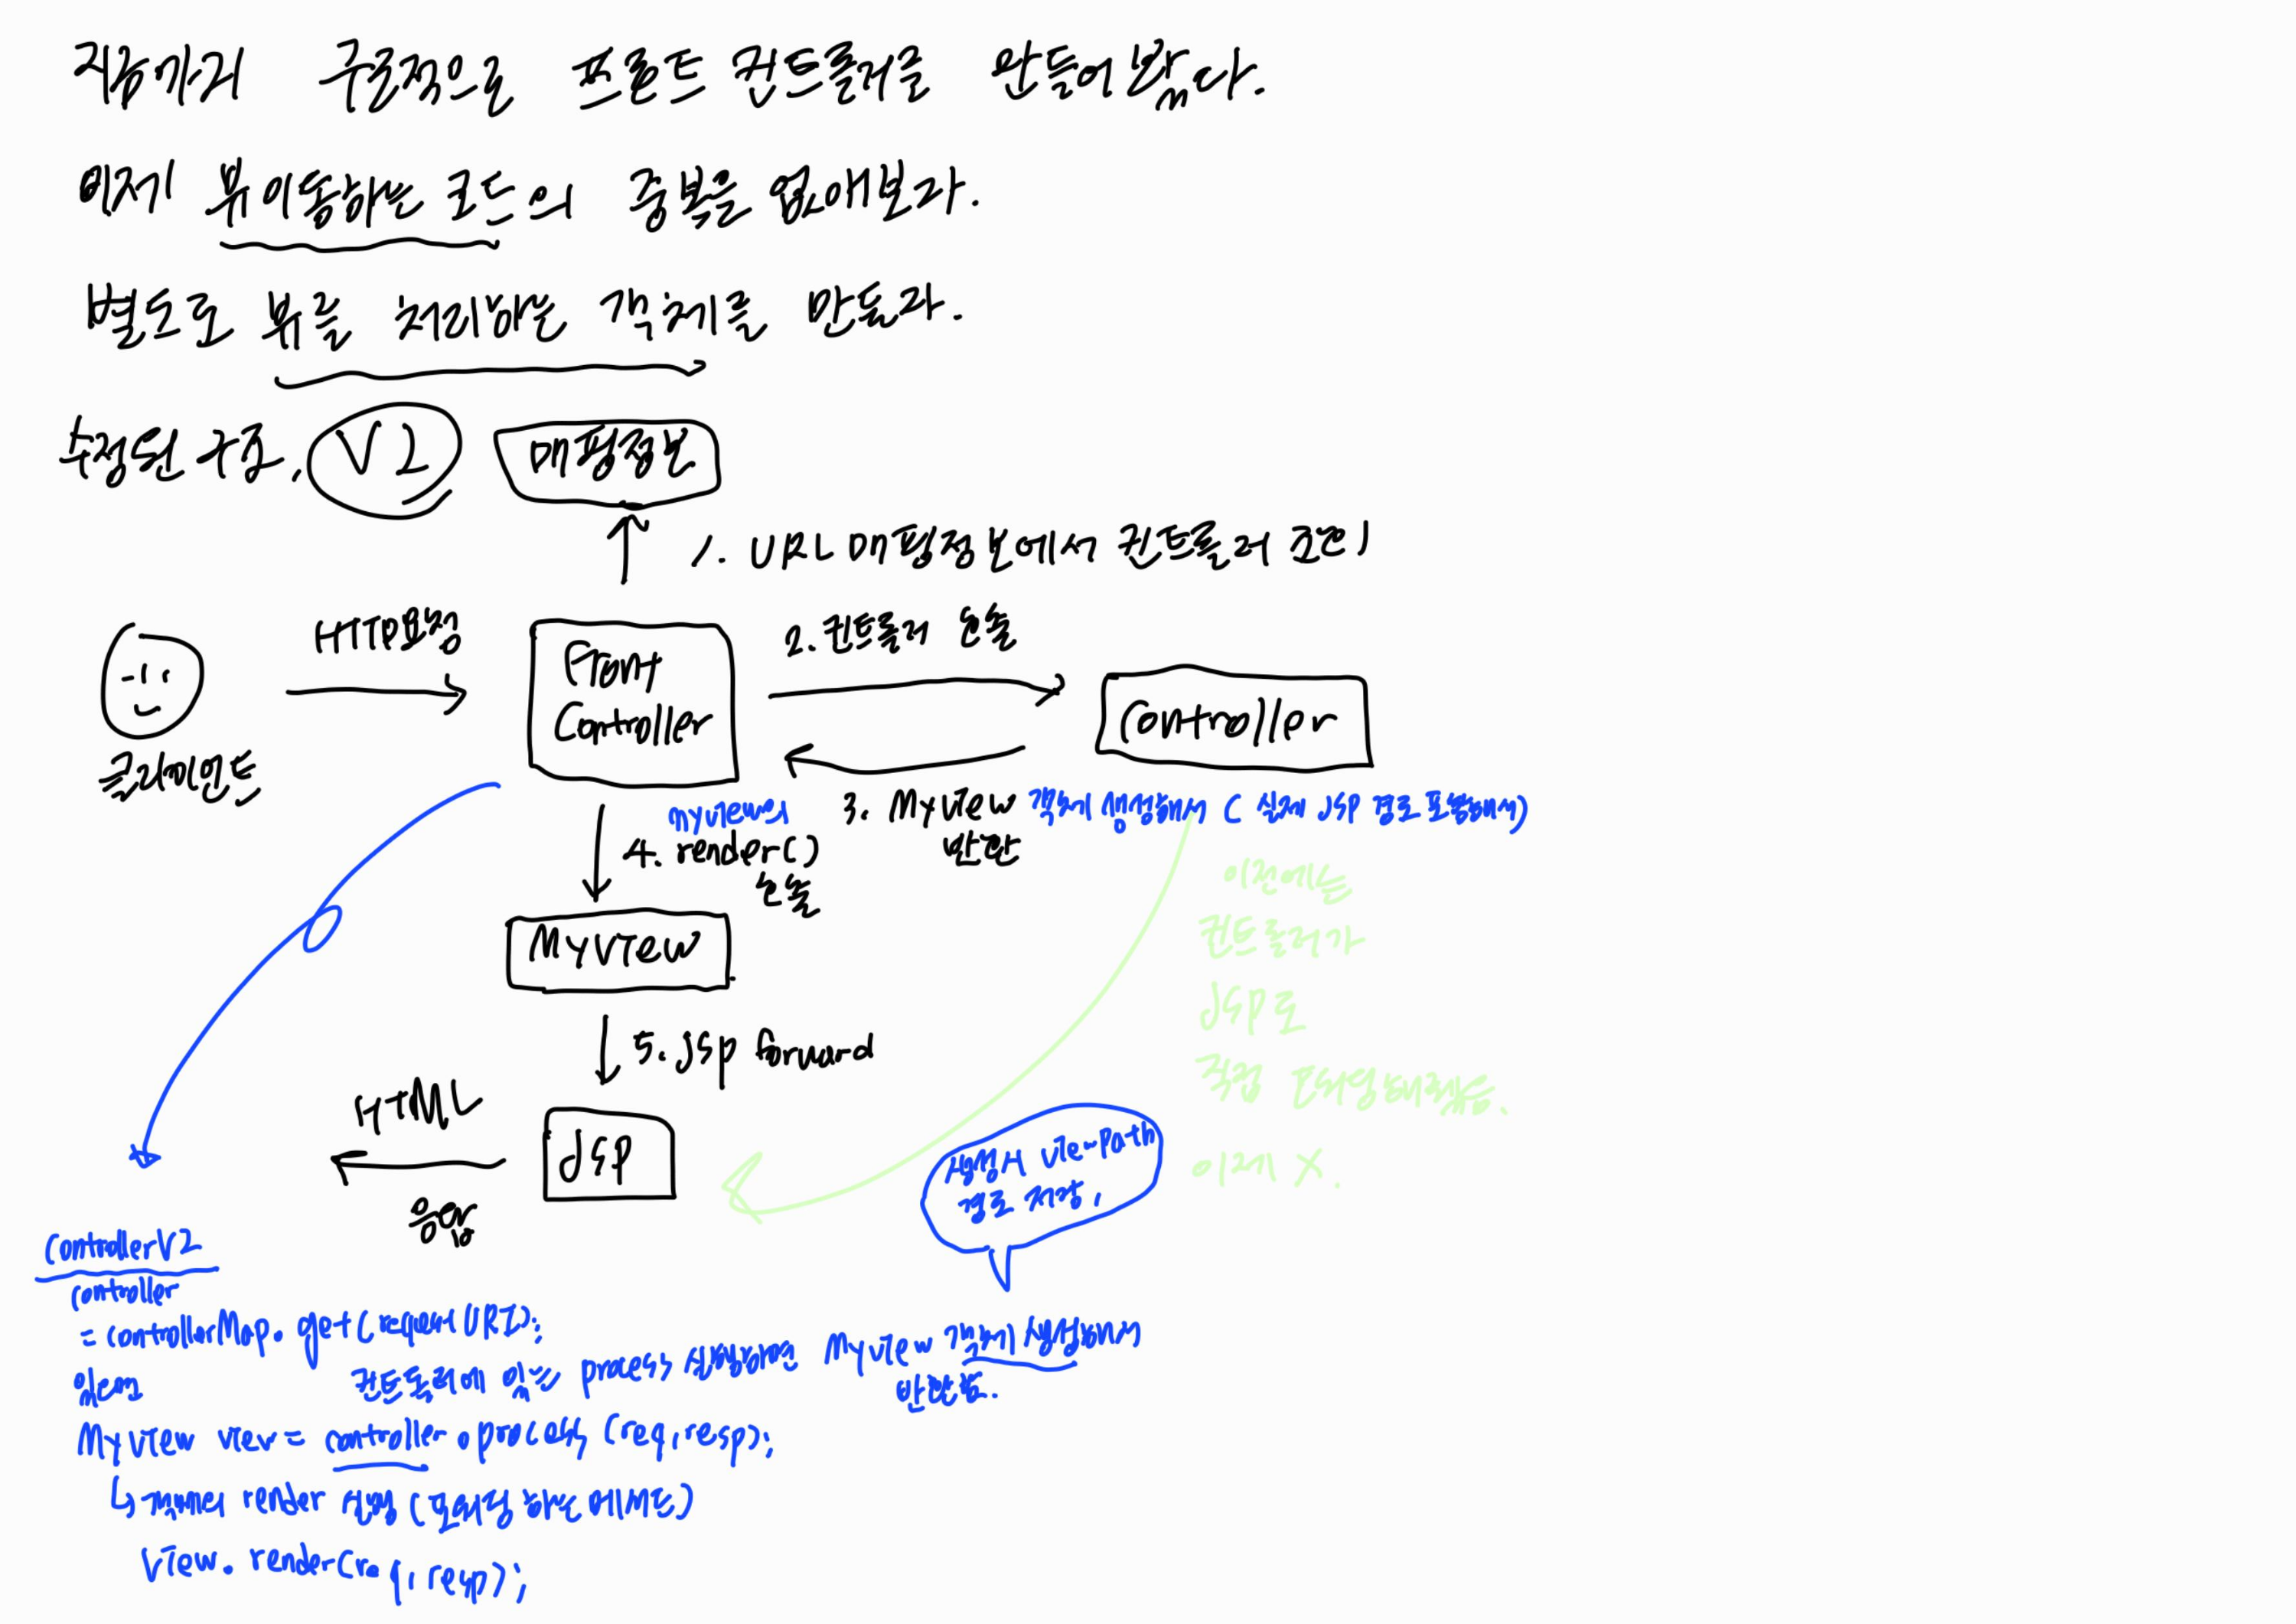 지금까지 구조적으로 프론트 컨트롤러를 만들어봤다.
이제 뷰 이동하는 코드의 중복을 없애보라.
별도로 뷰를 처리하는 객체를 만들라.
수정된 구조. V2
매핑정보
1. URL 매핑정보에서 컨트롤러 조회
HTTP요청
Front
Controller
2. 컨트롤러 호출
Controller
클라이언트
3. MyView 객체 생성해서 ( 실제 JSP 경로 포함해서)
반환
myview의
4. render()
호출
MyView
이전에는
컨트롤러가
JSP로
직접 포워딩해줬음.
이제 X.
5. jsp forward
JSP
HTML
응답
생성시 viewPath
경로 저장.
ControllerV2
controller
= controllerMap.get(requestURI);
있으면
컨트롤러에 있는 process 실행하면 MyView 객체 생성해서
반환함.
MyView view = controller.process(req, resp);
↳ 객체의 render 실행 (포워딩 하는 메서드)
view.render(req, resp);